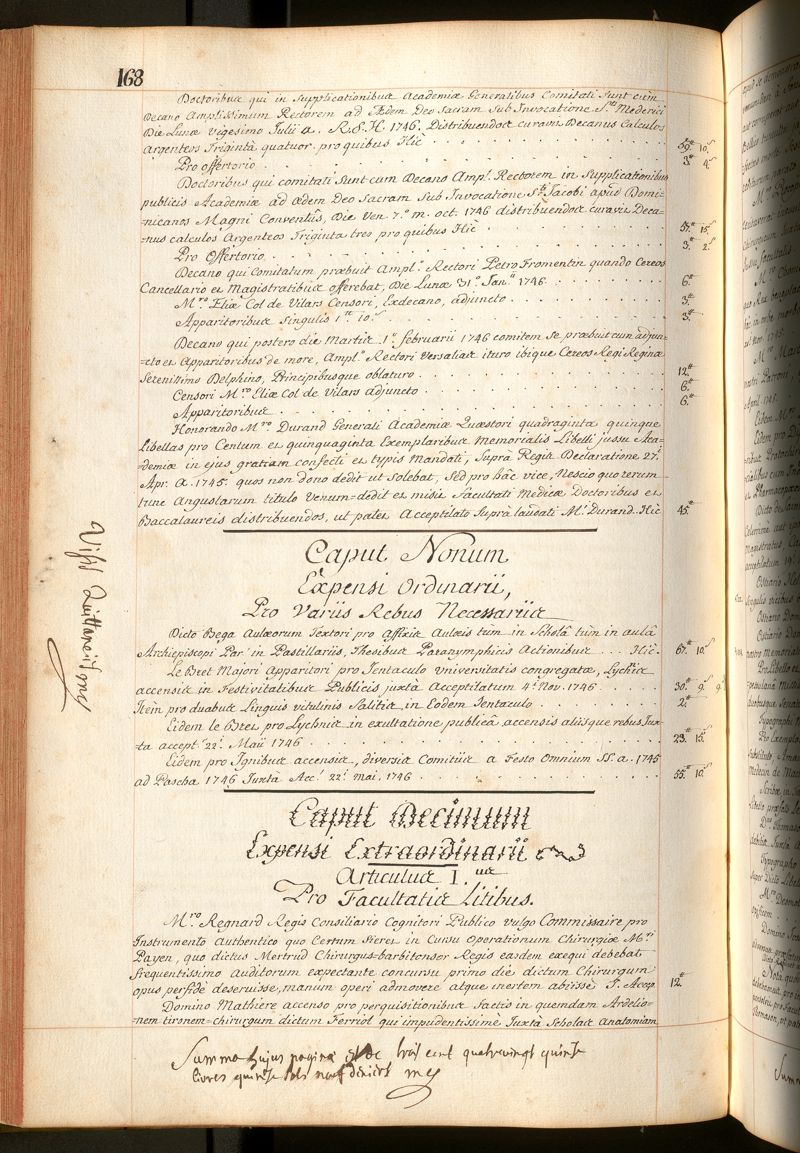 168
Doctoribus qui in Supplicationibus Academiæ Generalibus Comitati Sunt cum
Decano Amplissimum Rectorem ad Ædem Deo Sacram Sub Invocatione Sti Mederici
Die Lunæ Vigesimo Julii a. R.S.H. 1746. Distribuendos curavit Decanus Calculos
Argenteos Triginta quatuor. pro quibus Hic 59.# 10.s
Pro offertorio 3.# 4.s
Doctoribus qui comitati Sunt cum Decano Ampl. Rectorem in Supplicationibus
publicis Academiæ ad ædem Deo Sacram Sub Invocatione Sti Jacobi apud Domi-
=nicanos Magni Conventûs, Die Ven. 7.a m. oct. 1746 distribuendos curavit Deca-
nus calculos Argenteos Triginta tres pro quibus Hic 57.# 15.s
Pro Offertorio 3.# 2.s
Decano qui Comitatum præbuit Ampl.o Rectori Petro Fromentin quando Cereos
Cancellario et Magistratibus offerebat, Die Lunæ 31.a Jan.ii 1746 6.#
M.ro Eliæ Col de Vilars Censori, Exdecano, adjuncto 3.#
Apparitoribus Singulis 1.# 10.s 3.#
Decano qui postero die Martis 1.a februarii 1746 comitem Se præbuit cum adjun-
=cto et Apparitoribus de more, Ampl.o Rectori Versalias ituro ibique Cereos Regi Reginæ
Serenissimo Delphino, Principibusque oblaturo 12.#
Censori M.ro Eliæ Col de Vilars adjuncto 6.#
Apparitoribus 6.#
Honorando M.ro Durand Generali Academiæ Quæstori quadraginta quinque
Libellas pro Centum et quinquaginta Exemplaribus Memorialis Libelli jussu Aca-
=demiæ in ejus gratiam confecti et typis Mandati, Suprà Regis Declaratione 27.a
Apr. a. 1745. quos non dono dedit ut Solebat, Sed pro hâc vice, Nescio quo rerum
tunc Angustarum titulo Venum-dedit et misit Facultati Medicæ Doctoribus et
Baccalaureis distribuendos, ut patet Acceptilato Suprà laudati M.i Durand Hic 45.#
Caput Nonum
Expensi Ordinarii,
Pro Variis Rebus Necessariis
Dicto Bega Aulæorum Textori pro Affixis Aulæis tum in Scholâ tùm in aulâ
Archiepiscopi Par. in Pastillariis, Thesibus Paranymphicis Actionibus Hic. 67.# 10.s
Le Bret Majori Apparitori pro Jentaculo Universitatis congregatæ, Lychnis
accensis in Festivitatibus Publicis juxtà Acceptilatum 4.a Nov. 1746 30.# 9.s 9.d
Item pro duabus Linguis vitulinis Salitis in Eodem Jentaculo 2.#
Eidem le Bret pro Lychnis in exultatione publicâ accensis aliisque rebus Jux-
-ta accept. 22.a Maii 1746 23.# 15.s
Eidem pro Ignibus accensis, diversis Comitiis a Festo Omnium SS. a. 1745
ad Pascha 1746 Juxtà Acc. 22.a mai. 1746 55.# 10.s
Caput Decimum
Expensi Extraordinarii
Articulus I.us
Pro Facultatis Litibus.
M.ro Regnard Regis Consiliario Cognitori Publico vulgo Commissaire pro
Instrumento Authentico quo Certum Fieret in Cursu Operationum Chirurgiæ M.ri
Payen, quo dictus Mertrud Chirurgus-barbitonsor Regis easdem exequi debebat
frequentissimo Auditorum expectante concursu primo die dictum Chirurgum
opus perfidè deseruisse, manum operi admovere atque inertem abiisse 12.#
Domino Mathiere accenso pro perquisitionibus Factis in quemdam Ardelio-
nem tironem-chirurgum dictum Ferriol qui impudentissimè Juxtà Scholas Anatomiam
Summa hujus paginæ est de trois cent quatrevingt quinze
livres quinze sols neuf deniers